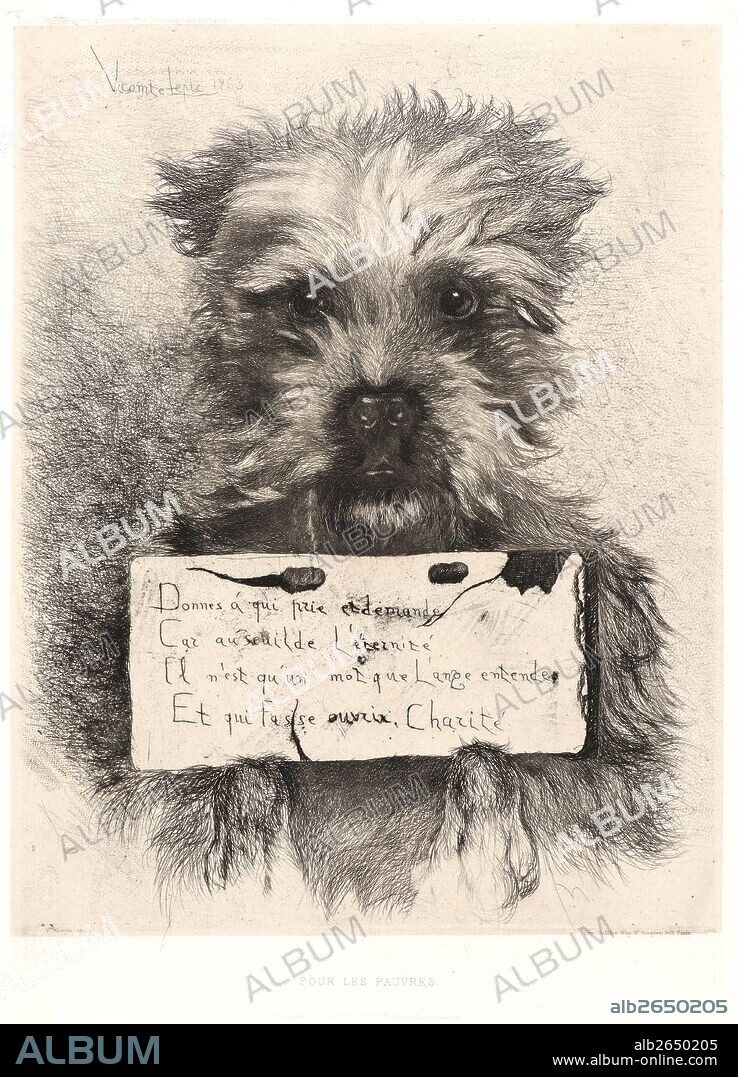 27
Vicomte Lepic 1863
Donnes á qui prie et demande
Car au seuil de L'éternité
Il n'est qu'un mot que L'ange entende
Et qui fasse ouvrir, Charité
POUR LES PAUVRES.
alb2650205
ALBUM
alb2650205
www.album-online.com